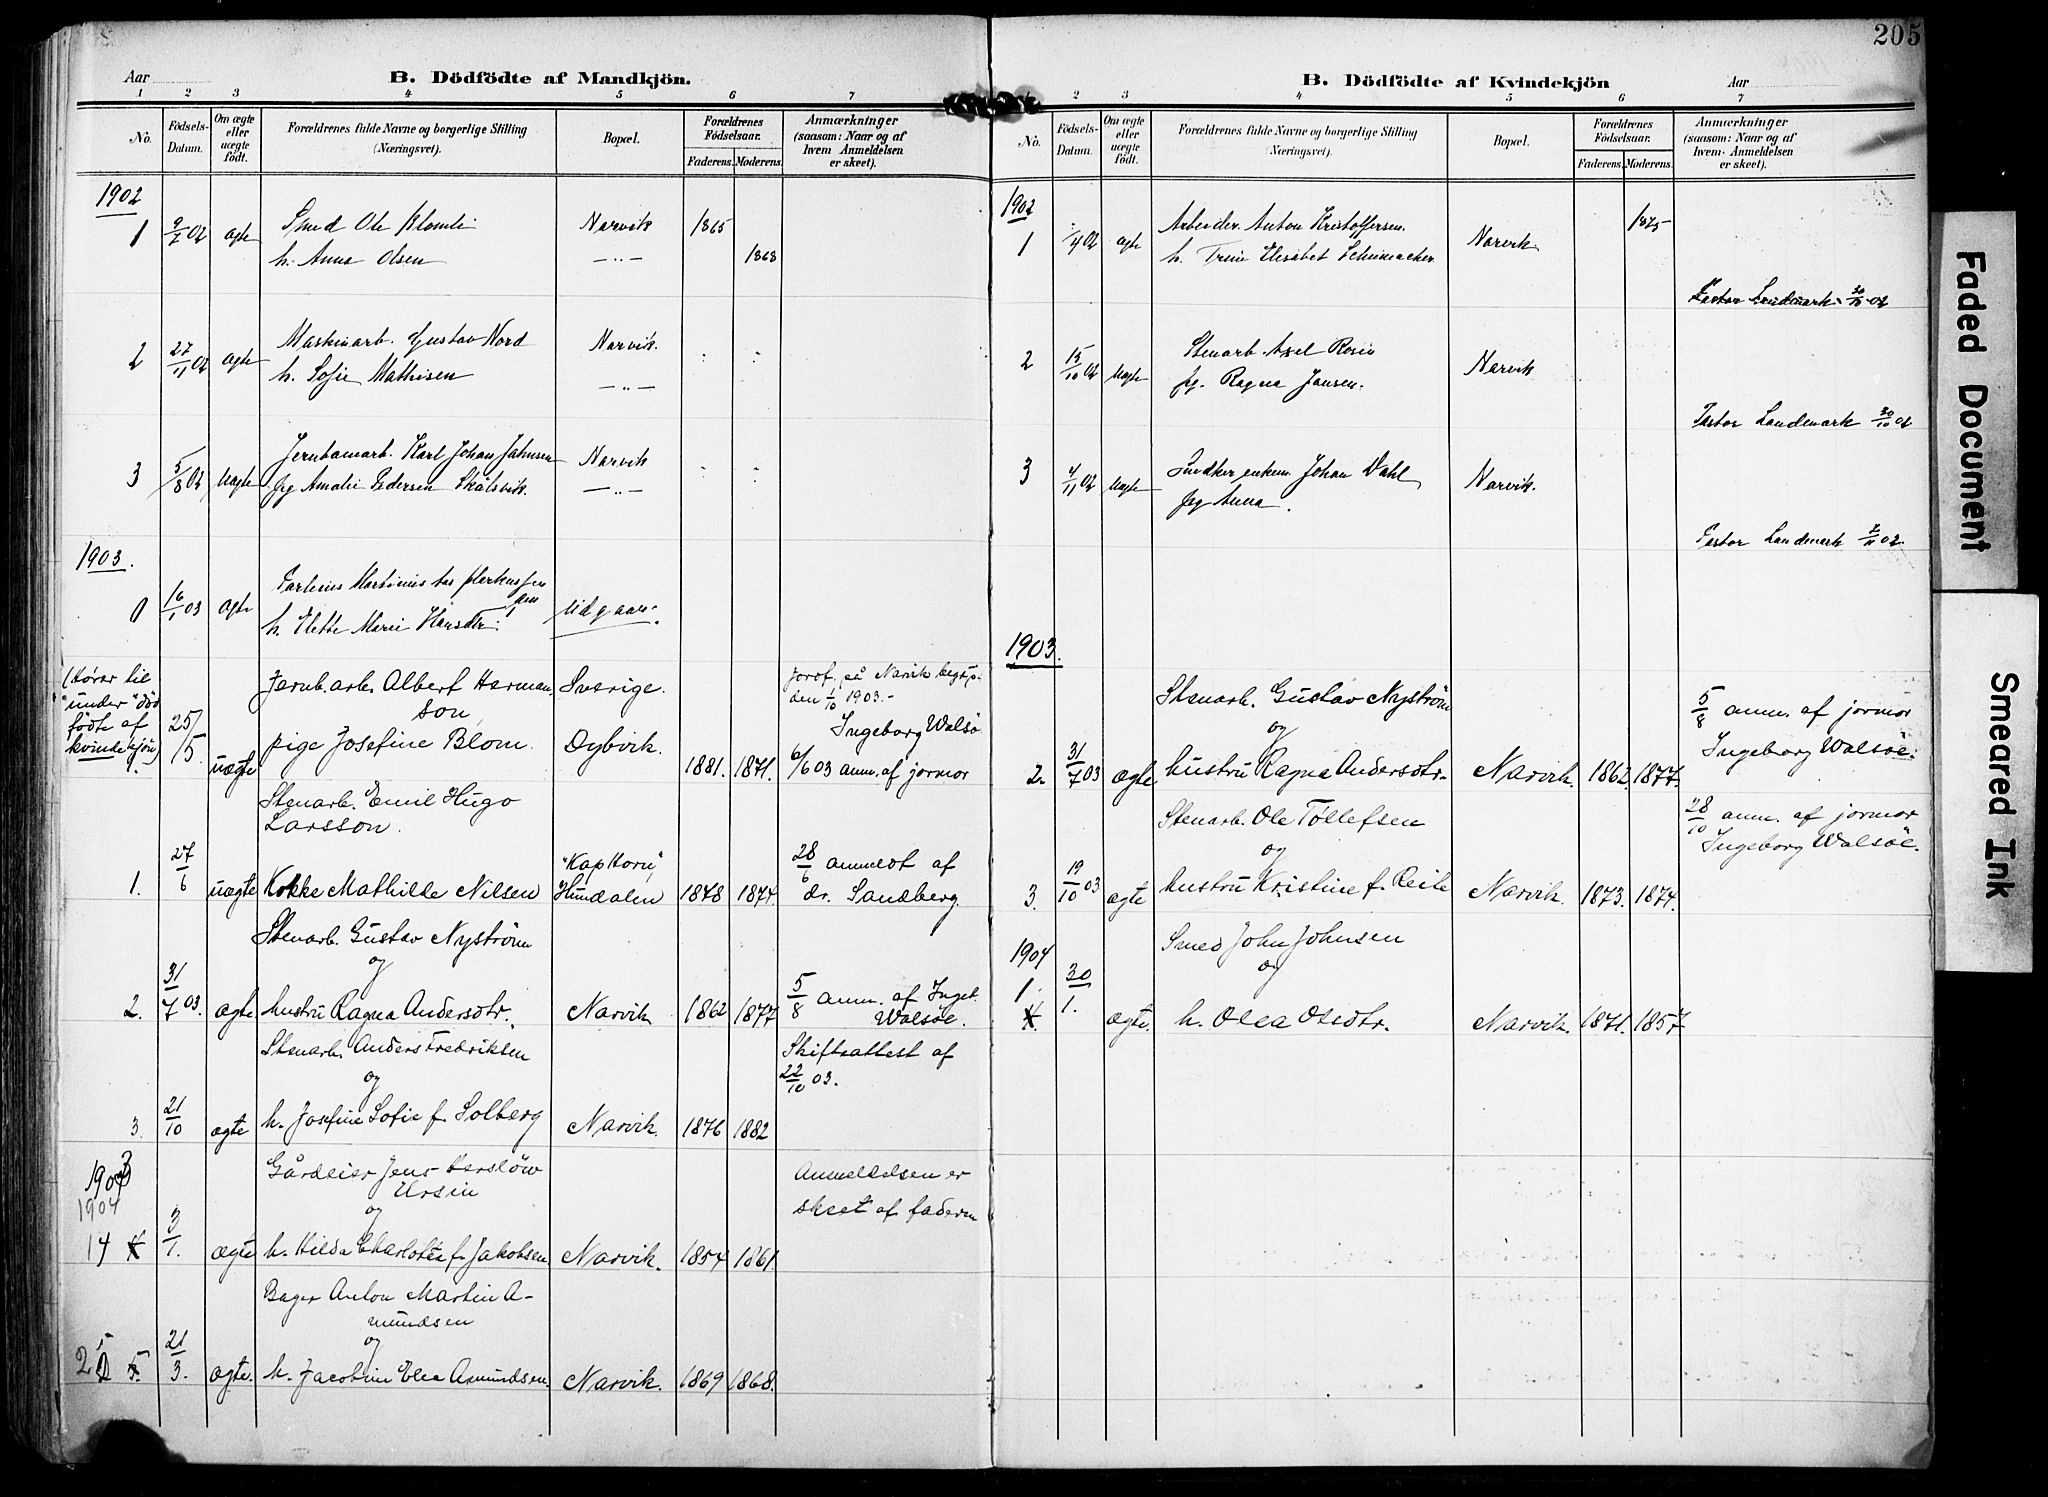 205
Aar
B. Dödfödte af Mandkjön.
1 2 3 4 5 6 7
No.
Födsels-Datum.
Om ægte eller uægte födt.
Forældrenes fulde Navne og borgerlige Stilling (Næringsvei).
Bopæl.
Forældrenes Födselsaar.
Faderens. Moderens.
Anmærkninger (saasom: Naar og af hvem Anmeldelsen er skeet).
1902
1 9/2 02 ægte Smed Ole Blomli Narvik 1865
h. Anna Olsen —„— 1868
2 27/11 02 ægte Maskinarb. Gustav Nord Narvik.
h. Sofie Mathisen —„—
3 5/8 02 uægte Jernbanearb. Karl Johan Johnsen Narvik
pg Amalie Pedersen —„—
1903.
16/1 03 ægte
h. Marie Hansdtr.
(Hører til "under" død fødte af kvindekjön)
Jernb.arb. Albert Herman-
son, Sverige.
25/5 uægte pige Josefine Blom. Dybvik. 1881. 1871.
Jordf. på Narvik
den 1/10 1903.-
Ingeborg Walsö
6/6 03 anm. af jormor
Stenarb. Emil Hugo
Larsson.
1. 27/6 uægte Kokke Mathilde Nilsen "Kap Horn" Hundalen 1878 1874.
28/6 anmeldt af
dr. Sandberg.
Stenarb. Gustav Nyström
og
2. 31/7 03. ægte hustru Ragna Andersdtr. Narvik 1862 1877
5/8 anm. af Ingeb.
Walsöe.
Stenarb. Anders Fredriksen
og
3. 21/10 ægte h. Josefine Sofie f. Solberg Narvik. 1876 1882
Skifteattest af
22/10 03.
1903
1904
Gårdeier Jens Hersløw
Ursin
og
14 3/1. ægte h. Hilda Charlotte f. Jakobsen Narvik. 1854 1861.
Anmeldelsen er
skeet af faderen
Bager Anton Martin A-
mundsen
og
2 21/3. ægte. h. Jacobine Elea Amundsen. Narvik. 1869 1868.
B. Dödfödte af Kvindekjön
Aar
2 3 4 5 6 7
No.
Födsels-Datum.
Om ægte eller uægte födt.
Forældrenes fulde Navne og borgerlige Stilling (Næringsvei).
Bopæl.
Forældrenes Födselsaar.
Faderens. Moderens.
Anmærkninger (saasom: Naar og af hvem Anmeldelsen er skeet).
1902
1 /4 02 ægte Arbeider Anton Kristoffersen. Narvik. 1875
h. Trine Elisabet Schumacher.
Pastor Landmark 02
2 15/10 02 uægte Stenarb. Axel Rosin Narvik
pg. Ragna Jansen.
Pastor Landmark 30/10 02
3 4/11 02 uægte Snedker enkem. Johan Dahl Narvik.
pg Anna.
Pastor Landmark 02.
1903.
Stenarb. Gustav Nyström
og
2. 31/7 03 ægte hustru Ragna Andersdtr. Narvik. 1862. 1877.
5/8 anm. af jormor
Ingeborg Walsöe.
Stenarb. Ole Tollefsen
og
3. 19/10 03 ægte hustru Kristine f. Reite Narvik. 1873. 1874.
28/10 anm. af jormor
Ingeborg Walsöe.
1904
Smed John Johnsen
og
1. 30/1. ægte. h. Olea Olsdtr. Narvik. 1871. 1857.
Faded Document
Smeared Ink